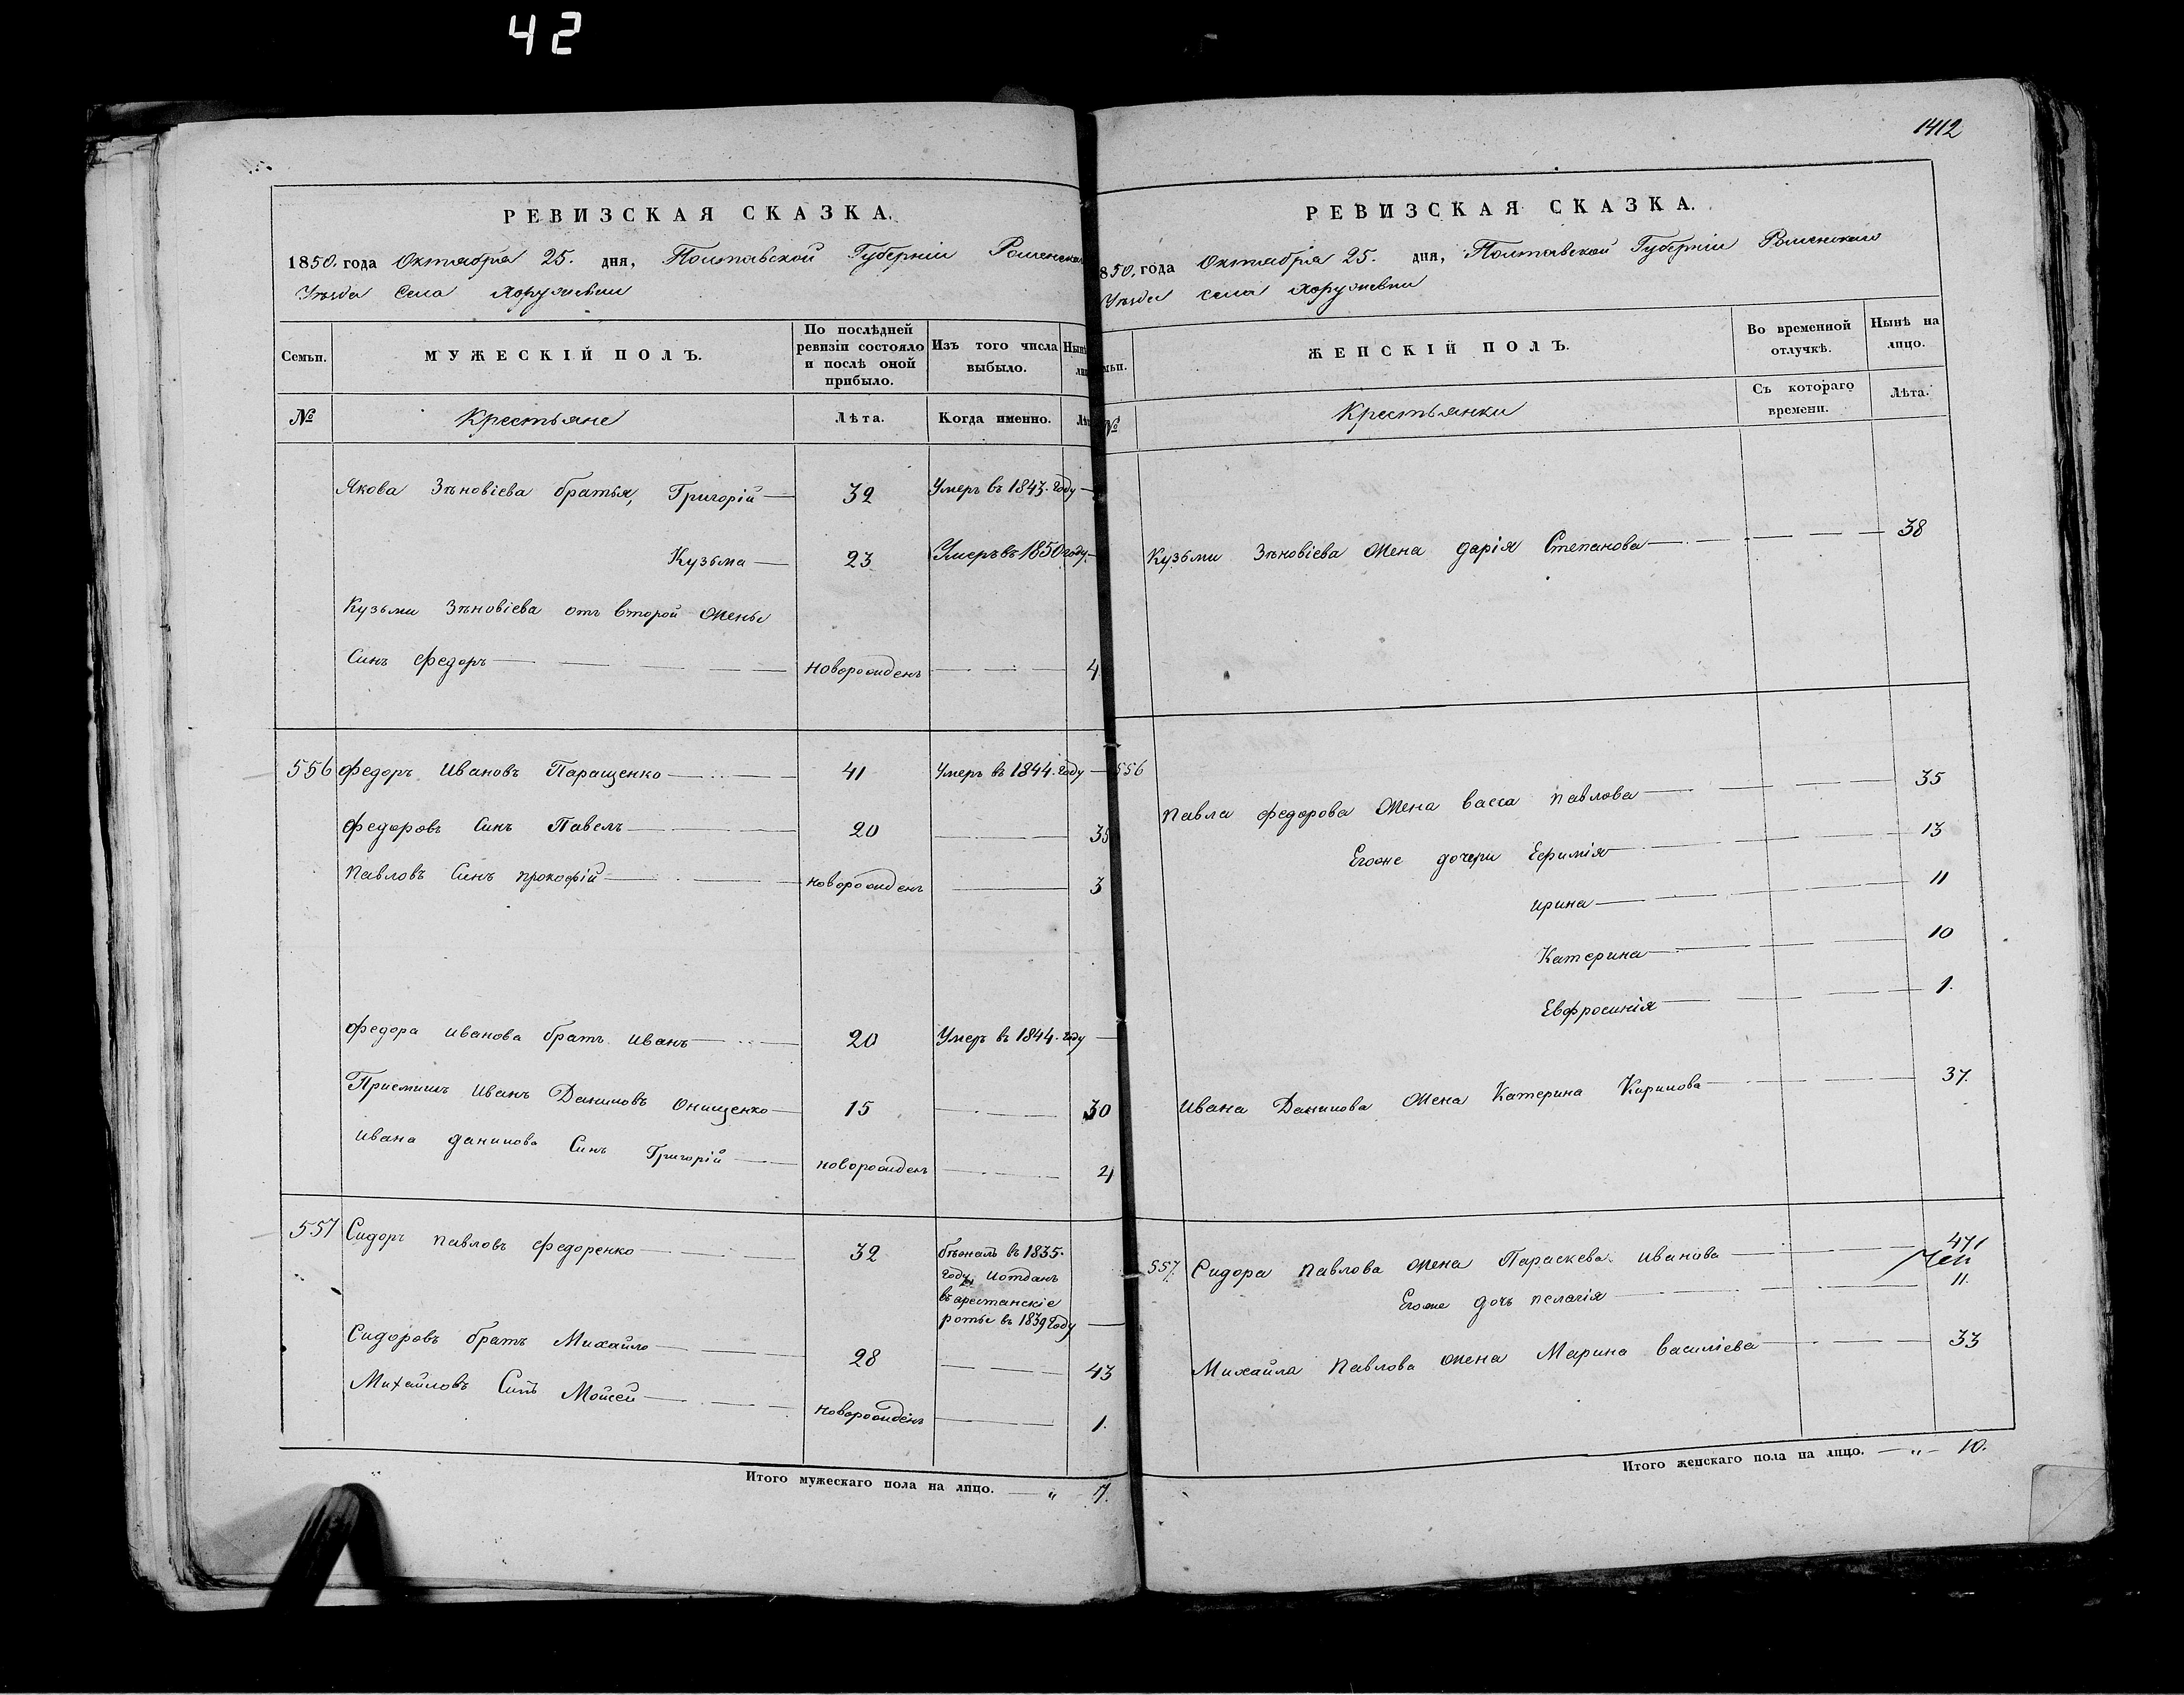 42
1412
РЕВИЗСКАЯ СКАЗКА.
1850. года Октября 25. дня, Полтавской Губерніи Роменскаго
Уѣзда Села Хоружевки
Семьи.
МУЖЕСКІЙ ПОЛЪ.
По послѣдней ревизіи состояло и послѣ оной прибыло.
Изъ того числа выбыло.
№
Крестьяне
Лѣта.
Когда именно.
Якова Зѣновіева братья, Григорій — 32 Умеръ въ 1843. году —
Кузьма — 23 Умеръ въ 1850 году. —
Кузьми Зѣновіева отъ второй жены
Синъ федоръ — новорожденъ — 4
556 федоръ Ивановъ Паращенко — 41 Умеръ въ 1844. году —
федоровъ Синъ Павелъ — 20 — 35
павловъ Синъ прокофій — новорожденъ — 3
федора иванова братъ иванъ — 20 Умеръ въ 1844. году —
Приемишъ Иванъ Даниловъ Онищенко — 15 — 30
ивана данилова Синъ Григорій — новорожденъ — 4
557 Сидоръ павловъ федоренко — 32 бѣжалъ въ 1835.
году и отданъ
въ арестанскіе
роты въ 1839 году —
Сидоровъ братъ Михайло — 28 — 43
Михайловъ Синъ Мойсей — новорожденъ — 1.
Итого мужескаго пола на лицо. — „ 7.
РЕВИЗСКАЯ СКАЗКА.
850. года Октября 25. дня, Полтавской Губерніи Роменскаго
Уѣзда села Хоружевки
ЖЕНСКІЙ ПОЛЪ.
Во временной отлучкѣ.
Нынѣ на лицо.
Съ котораго времени.
Лѣта.
№
Крестьянки
Кузьми Зѣновіева жена дарія Степанова — 38
556
павла федорова жена васса павлова — 35
Егоже дочери Ефимія — 13
ирина — 11
Катерина — 10
Евфросинія — 1.
Ивана Данилова жена Катерина Кирилова — 37.
557. Сидора павлова жена Параскева иванова — 47
Егоже дочь пелагія — 11.
Михайла павлова жена Марина василіева — 33
Итого женскаго пола на лицо. — „ — 10.